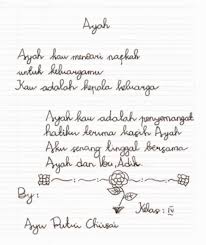 Ayah
Ayah kau mencari nafkah
untuk keluargamu
Kau adalah kepala keluarga
Ayah kau adalah penyemangat
hatiku terima kasih Ayah
Aku senang tinggal bersama
Ayah dan Ibu, Adik.
By:
Kelas: IV
Ayu Putri